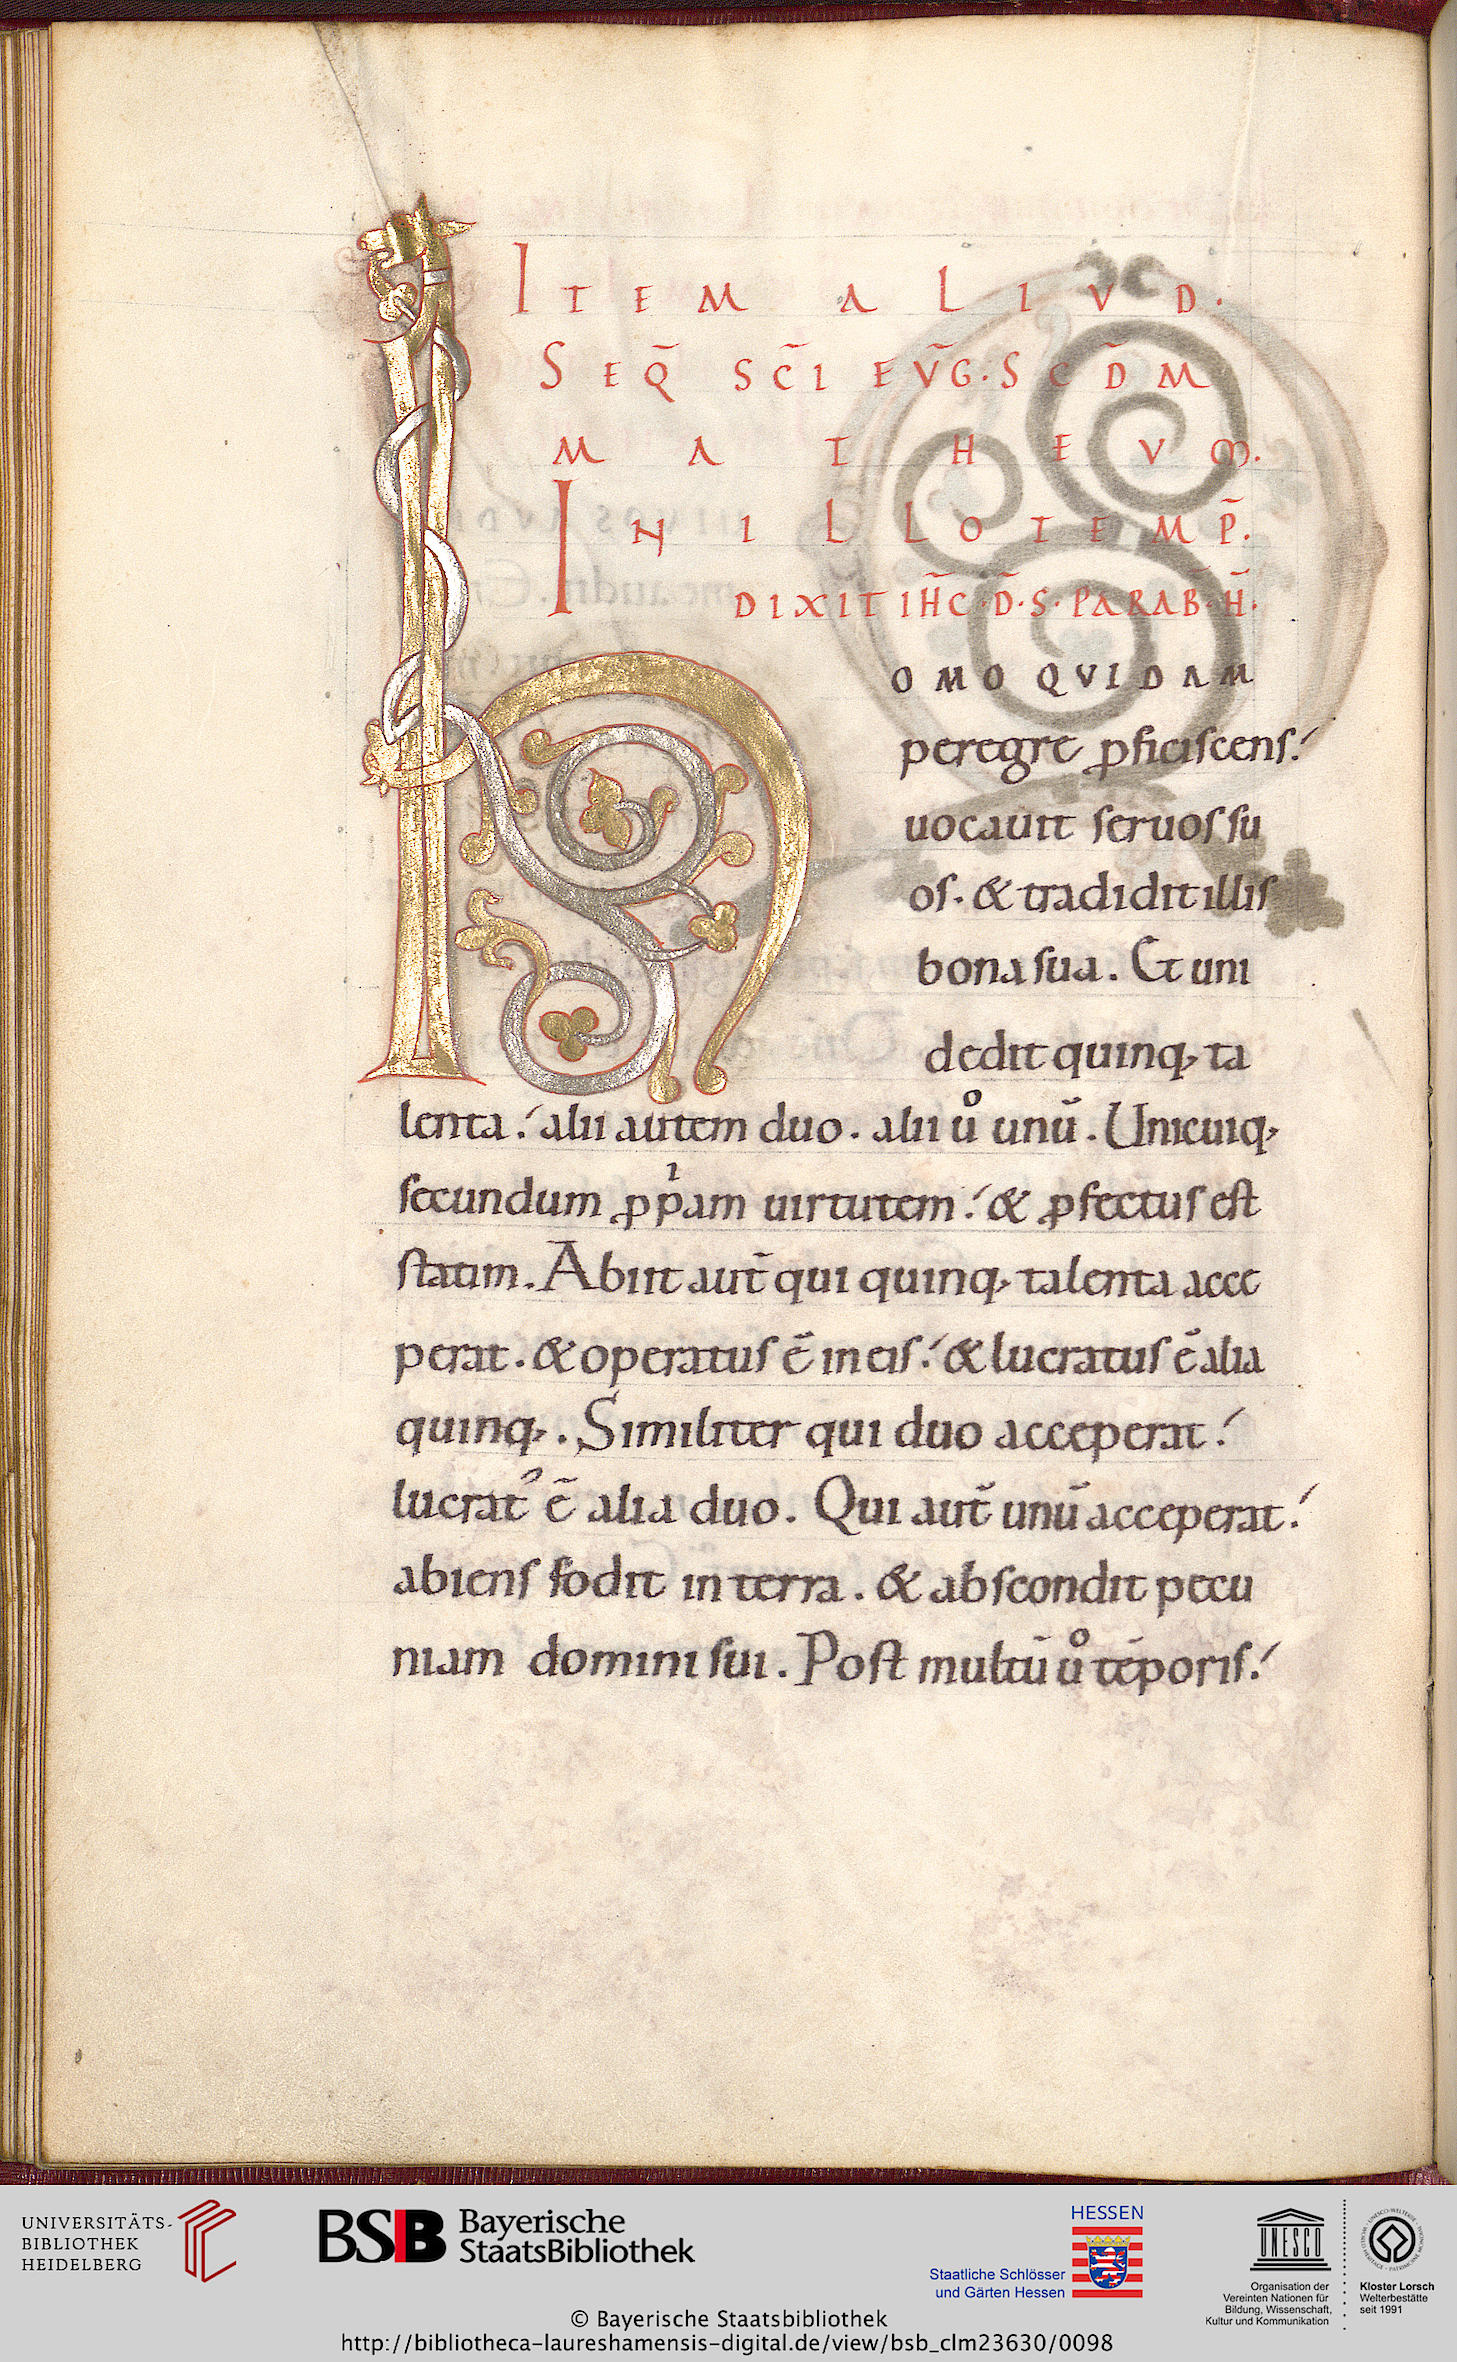 ITEM ALIVD.
SEQ̄ SC̄I EV̄G. SCD̄M
MATHEVM.
IN ILLO TEMP̄.
DIXIT IH̄C. D̄. S. PARAB̄. H̄.
HOMO QVIDAM
peregre ꝓficiscens.
uocauit seruos su
os. & tradidit illis
bona sua. Et uni
dedit quinq; ta
lenta. alii autem duo. alii uͦ unū. Unicuiq;
secundum ꝓpͥam uirtutem. & ꝓfectus est
statim. Abiit aut̄ qui quinq; talenta acce
perat. & operatus ē in eis. & lucratus ē alia
quinq;. Similiter qui duo acceperat.
lucratꝰ ē alia duo. Qui aut̄ unū acceperat.
abiens fodit in terra. & abscondit pecu
niam domini sui. Post multū uͦ tēporis.
UNIVERSITÄTS-
BIBLIOTHEK
HEIDELBERG
BSB Bayerische
StaatsBibliothek
HESSEN
Staatliche Schlösser
und Gärten Hessen
UNESCO
Organisation der
Vereinten Nationen für
Bildung, Wissenschaft,
Kultur und Kommunikation
Kloster Lorsch
Welterbestätte
seit 1991
© Bayerische Staatsbibliothek
http://bibliotheca-laureshamensis-digital.de/view/bsb_clm23630/0098